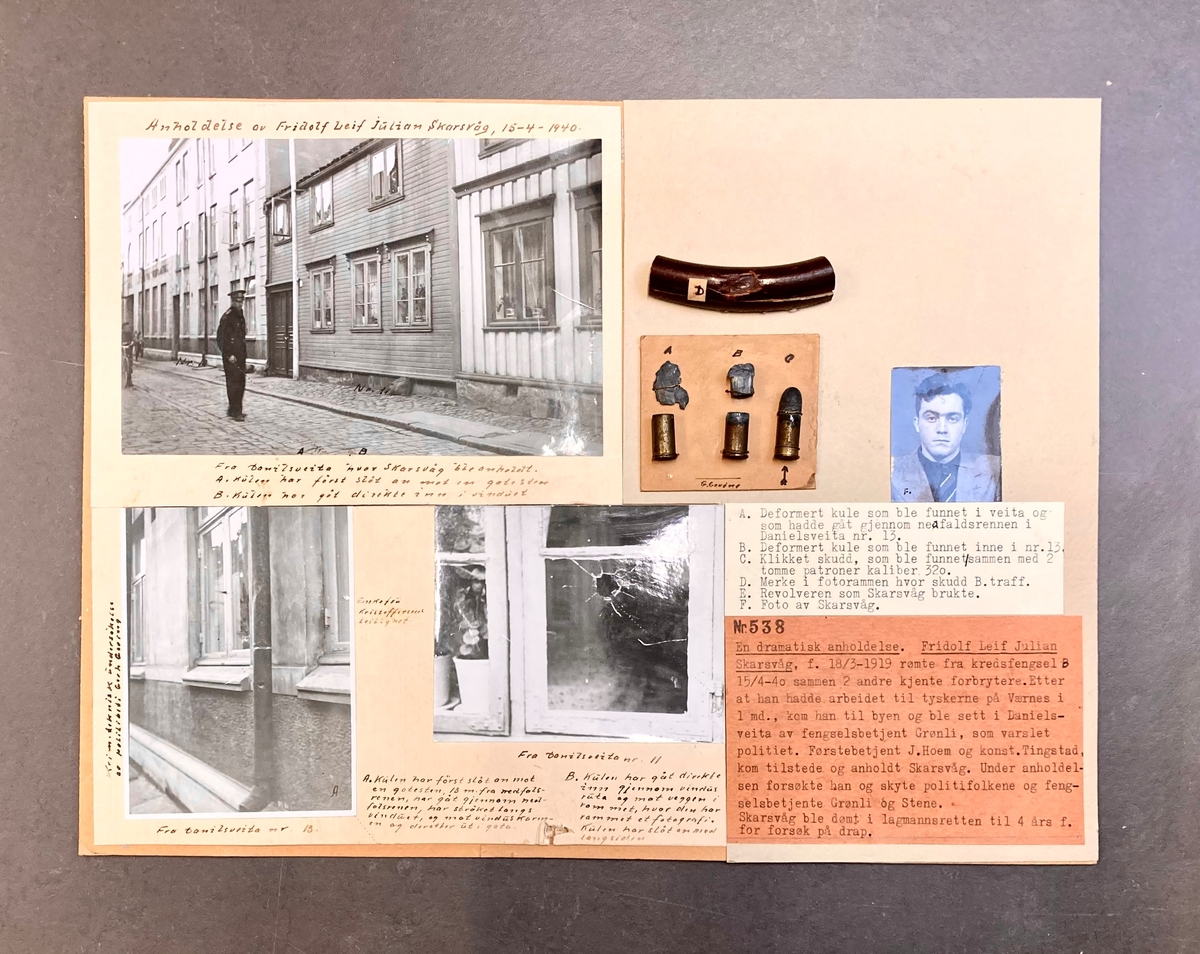 Anholdelse av Fridolf Leif Julian Skarsvåg, 15-4-1940.
Nr. 11
A B
Fra Danilsveita hvor Skarsvåg ble anholdt.
A. Kulen har først slåt an mot en gatesten
B. Kulen har gåt direkte inn i vinduet
D
A B C
A. Deformert kule som ble funnet i veita og
som hadde gåt gjennom nedfaldsrennen i
Danielsveita nr. 13.
B. Deformert kule, som ble funnet inne i nr.13.
C. Klikket skudd, som ble funnet/sammen med 2
tomme patroner kaliber 320.
D. Merke i fotorammen hvor skudd B.traff.
E. Revolveren som Skarsvåg brukte.
F. Foto av Skarsvåg.
F.
Nr. 538
En dramatisk anholdelse. Fridolf Leif Julian
Skarsvåg, f. 18/3-1919 rømte fra kredsfengsel B
15/4-40 sammen 2 andre kjente forbrytere.Etter
at han hadde arbeidet til tyskerne på Værnes i
1 md., kom han til byen og ble sett i Daniels-
veita av fengselsbetjent Grønli, som varslet
politiet. Førstebetjent J.Hoem og konst.Tingstad,
kom tilstede og anholdt Skarsvåg. Under anholdel-
sen forsøkte han og skyte politifolkene og feng-
selsbetjente Grønli og Stene.
Skarsvåg ble dømt i lagmannsretten til 4 års f.
for forsøk på drap.
Krim.teknisk undersøkelse
av politibetj. Gerh. Govring
A
Fra Danilsveita nr. 13.
Enkefrü
Kristoffersens
leilighet
Fra Danilsveita nr. 11
A. Kulen har først slåt an mot
en gatesten, 13 m. fra nedfals-
renen, har gåt gjennom ned-
falsrenen, har strøket langs
vinduet, og mot vinduskarm-
en og derefter ut i gata.
B. Kulen har gåt direkte
inn gjennom vindus
ruta og mot veggen i
rommet, hvor den har
rammet et fotografi.
Kulen har slåt an med
langsiden